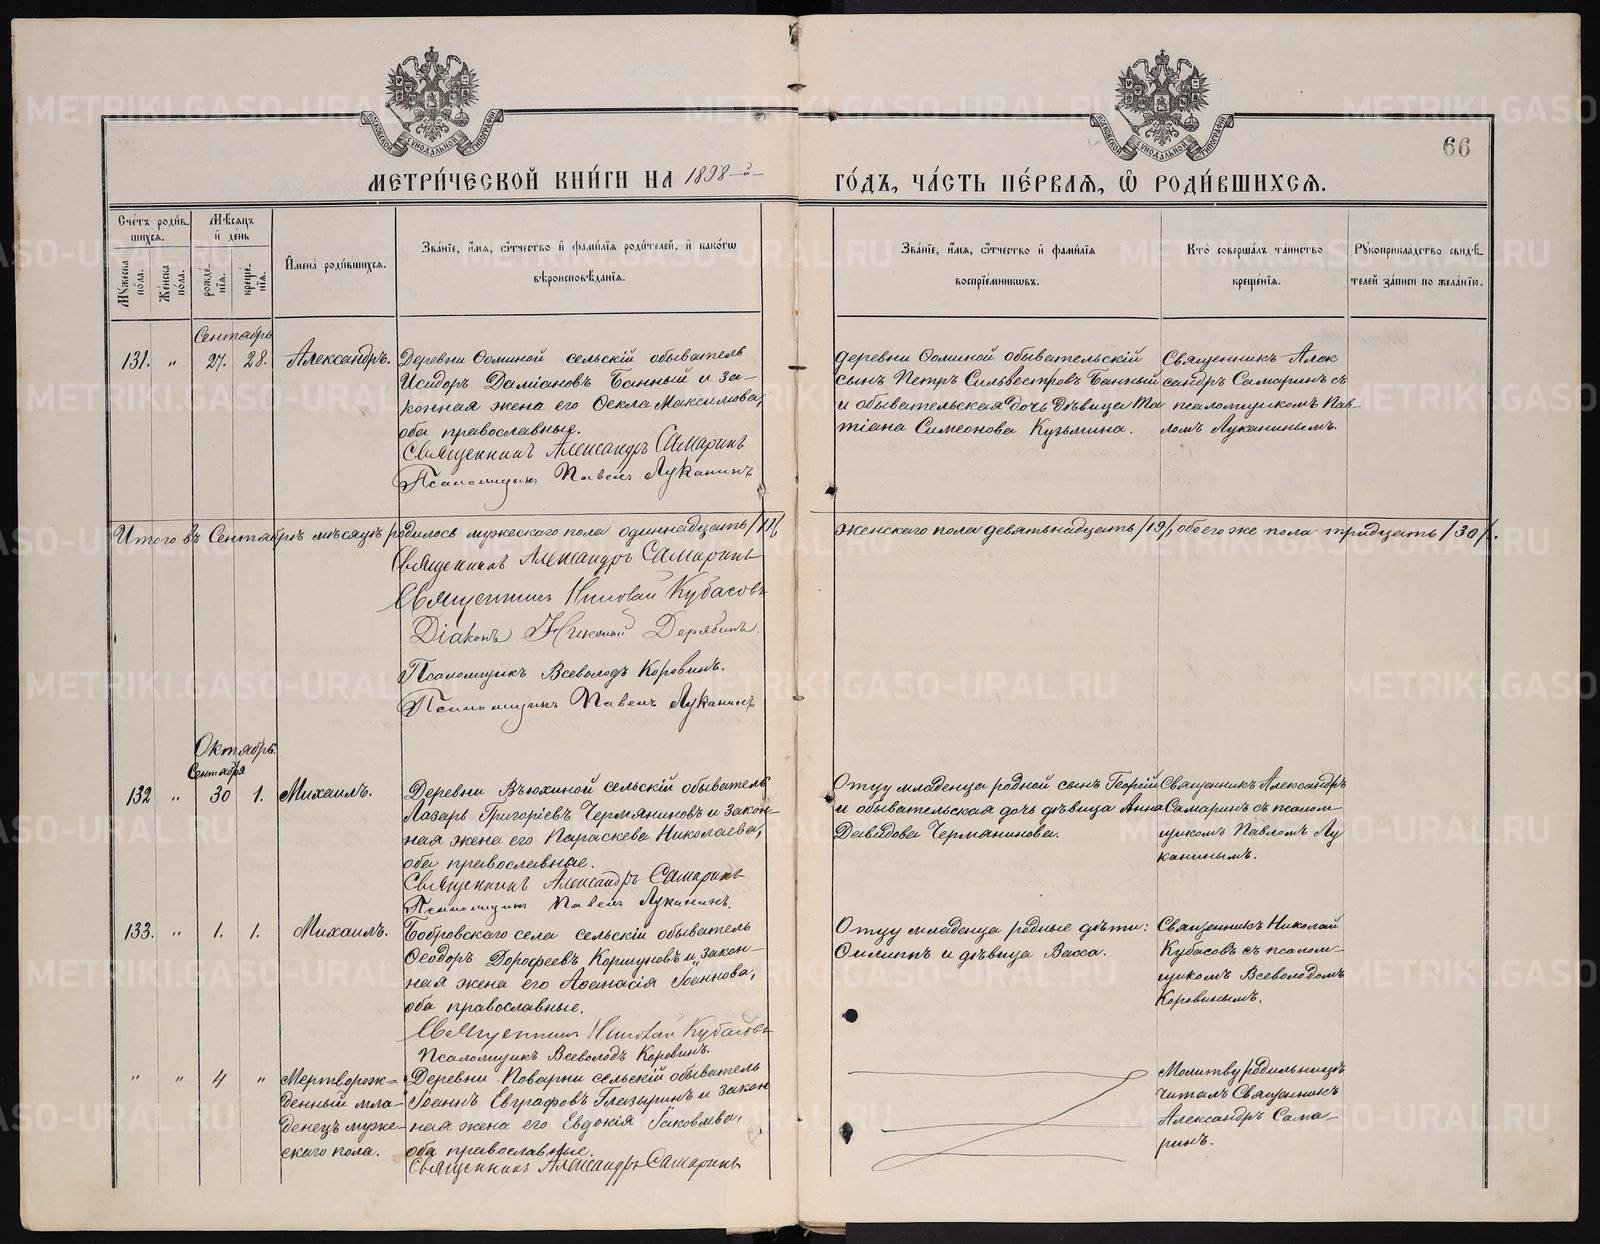 66
МЕТРИ́ЧЕСКОЙ КНИ́ГИ НА 1898-й
ГО́ДЪ, ЧА́СТЬ ПЕ́РВАЯ, Ѽ РОДИ́ВШИХСЯ.
Сче́тъ роди́вшихся.
Мѣ́сяцъ и҆ де́нь
И҆мена̀ роди́вшихся.
Зва́нїе, и҆́мя, ѻ҆́тчество и҆ фами́лїя роди́телей, и҆ како́гѡ вѣроисповѣ́данїя.
Зва́нїе, и҆́мя, ѻ҆́тчество и҆ фами́лїя воспрїе́мникѡвъ.
Кто̀ соверша́лъ та́инство креще́нїя.
Рꙋкоприкла́дство свидѣ́телей за́писи по жела́нїю.
Мꙋ́жеска по́ла.
Же́нска по́ла.
рожде́нїя.
креще́нїя.
Сентябрь
131. „ 27. 28. Александръ.
Деревни Ѳоминой сельскій обыватель
Исидоръ Даміановъ Банный и за-
конная жена его Ѳекла Максимова,
оба православные.
Священникъ Александръ Самаринъ
Псаломщикъ Павелъ Луканинъ
деревни Ѳоминой обывательскій
сынъ Петръ Сильвестровъ Банный
и обывательская дочь дѣвица Та
тіана Симеонова Кузьмина.
Священникъ Алек
сандръ Самаринъ съ
псаломщикомъ Пав-
ломъ Луканинымъ.
Итого въ Сентябрѣ мѣсяцѣ родилось мужескаго пола одиннадцать /11/
женскаго пола девятьнадцать /19/, обоего же пола тридцать /30/.
Священникъ Александръ Самаринъ
Священникъ Николай Кубасовъ
Діаконъ Николай Дерябинъ.
Псаломщикъ Всеволодъ Коровинъ.
Псаломщикъ Павелъ Луканинъ
Октябрь.
Сентября
132 „ 30 1. Михаилъ.
Деревни Вьюхиной сельскій обыватель
Лазарь Григоріевъ Чермяниновъ и закон-
ная жена его Параскева Николаева,
оба православные.
Священникъ Александръ Самаринъ
Псаломщикъ Павелъ Луканинъ.
Отцу младенца родной сынъ Георгій
и обывательская дочь дѣвица Анна
Давидова Чермянинова.
Священникъ Александръ
Самаринъ съ псалом-
щикомъ Павломъ Лу
канинымъ.
133. „ 1. 1. Михаилъ.
Бобровскаго села сельскій обыватель
Ѳеодоръ Дороѳеевъ Коршуновъ и закон-
ная жена его Аѳанасія Іоаннова,
оба православные.
Священникъ Николай Кубасовъ
Псаломщикъ Всеволодъ Коровинъ.
Отцу младенца родные дѣти:
Филиппъ и дѣвица Васса.
Священникъ Николай
Кубасовъ съ псалом-
щикомъ Всеволодомъ
Коровинымъ.
„ „ 4 „ Мертворож-
денный мла-
денецъ муже-
скаго пола.
Деревни Поварни сельскій обыватель
Іоаннъ Евграфовъ Глазыринъ и закон
ная жена его Евдокія Іаковлева,
оба православные.
Священникъ Александръ Самаринъ
Молитву родильницѣ
читалъ Священникъ
Александръ Сама-
ринъ.